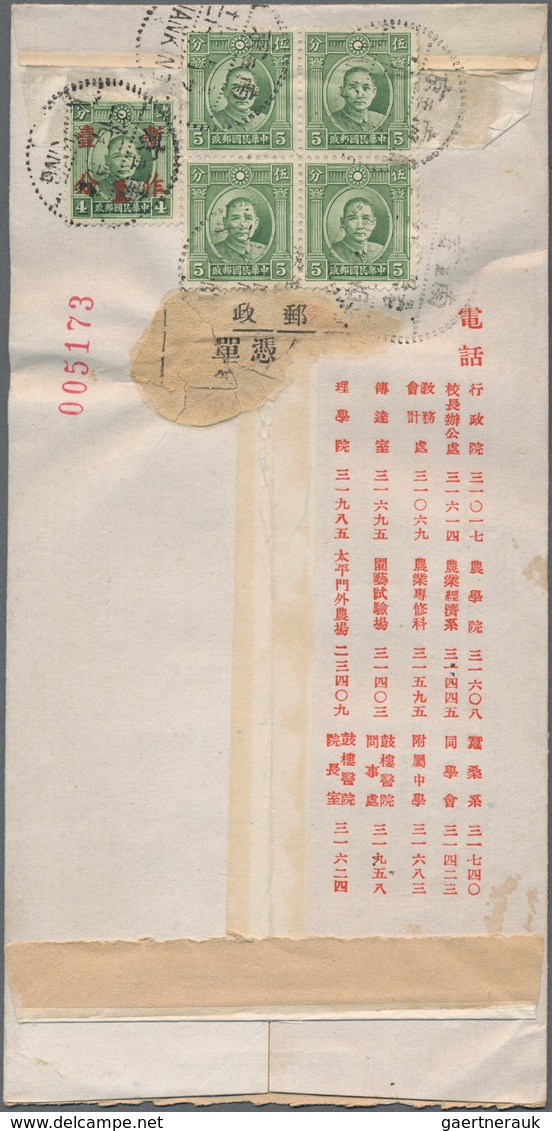 分 伍
5 政郵國民華中 5
分 伍
5 政郵國民華中 5
5 政郵國民華中 5
5 政郵國民華中 5
分
壹 暫
分 作
4 政郵國民華中 4
NANKING
005173
政 郵
單 憑
電話
行政院 三一〇一七
校長辦公處 三一六一四
教務處 會計處 三一〇六九
傳達室 三一六九五
理學院 三一九八五
農學院 三一六〇八
農業經濟系 三一四四五
農業專修科 三一五九五
園藝試驗場 三一四〇三
太平門外農場 二三四〇九
蠶桑系 三一七四〇
同學會 三一四二三
附屬中學 三一六八三
鼓樓醫院問事處 三一九五八
鼓樓醫院院長室 三一六二四
www.delcampe.net
gaertnerauk